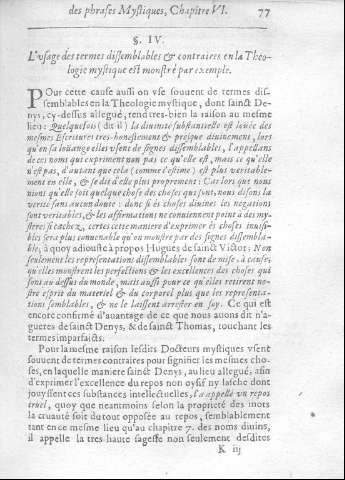 des phrases Mystiques, Chapitre VI. 77
§. IV.
L'usage des termes dissemblables & contraires en la Theo-
logie mystique est monstré par exemple.
POur cette cause aussi on vse souuent de termes dis-
semblables en la Theologie mystique, dont sainct De-
nys, cy-dessus allegué, rend tres-bien la raison au mesme
lieu: Quelquefois (dit il) la diuinité substantielle est loüée des
mesmes Escritures tres-honestement & presque diuinement, lors
qu'en sa loüange elles vsent de signes dissemblables, l'appellans
de ces noms qui expriment non pas ce qu'elle est, mais ce qu'elle
n'est pas, d'autant que cela (comme i'estime) est plus veritable-
ment en elle, & se dit d'elle plus proprement: Car lors que nous
nions qu'elle soit quelque chose de choses qui sont, nous disons la
verité sans aucun doute: donc si és choses diuines les negations
sont veritables, & les affirmations ne conuiennent point à des my-
steres si cachez, certes cette maniere d'exprimer és choses inuisi-
bles sera plus conuenable qu'on monstre par des signes dissembla-
bles; à quoy adiouste à propos Hugues de sainct Victor: Non
seulement les representations dissemblables sont de mise, à cause
qu'elles monstrent les perfections & les excellences des choses qui
sont au dessus du monde, mais aussi pour ce qu'elles retirent no-
stre esprit du materiel & du corporel plus que les representa-
tions semblables, & ne le laissent arrester en soy. Ce qui est
encore confirmé d'auantage de ce que nous auons dit n'a-
gueres de sainct Denys, & de sainct Thomas, touchant les
termes imparfaicts.
Pour la mesme raison lesdits Docteurs mystiques vsent
souuent de termes contraires pour signifier les mesmes cho-
ses, en laquelle maniere sainct Denys, au lieu allegué, afin
d'exprimer l'excellence du repos non oysif ny lasche dont
jouyssent ces substances intellectuelles, l'a appellé vn repos
cruel, quoy que neantmoins selon la propricté des mots
la cruauté soit du tout opposée au repos, semblablement
tant en ce mesme lieu qu'au chapitre 7. des noms diuins,
il appelle la tres-haute sagesse non seulement desdites
K iij